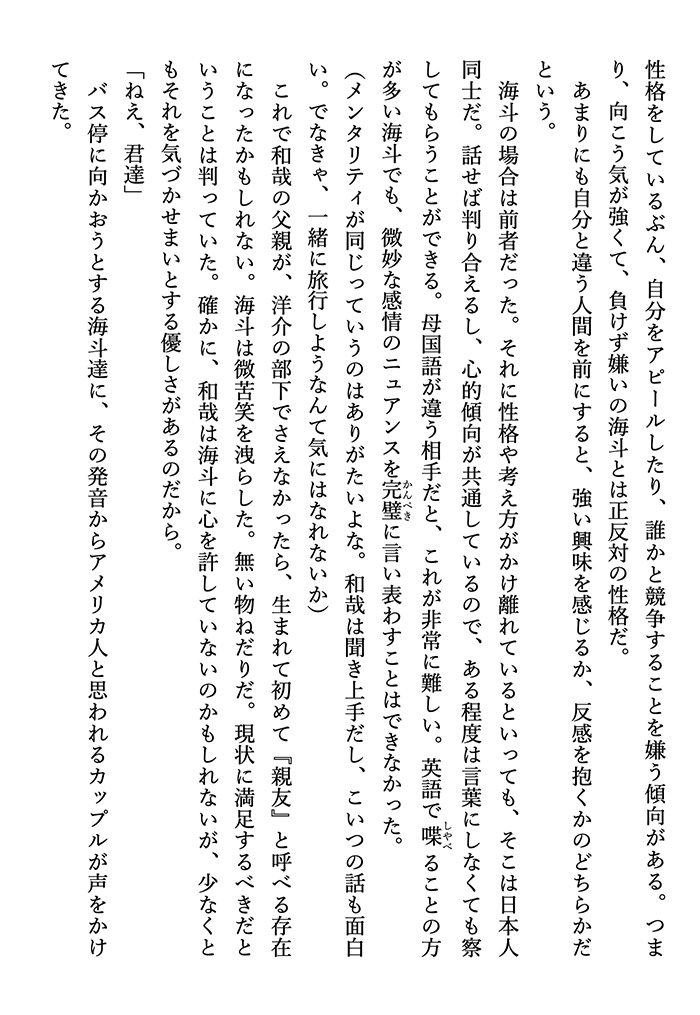 性格をしているぶん、自分をアピールしたり、誰かと競争することを嫌う傾向がある。つま
り、向こう気が強くて、負けず嫌いの海斗とは正反対の性格だ。
あまりにも自分と違う人間を前にすると、強い興味を感じるか、反感を抱くかのどちらかだ
という。
海斗の場合は前者だった。それに性格や考え方がかけ離れているといっても、そこは日本人
同士だ。話せば判り合えるし、心的傾向が共通しているので、ある程度は言葉にしなくても察
してもらうことができる。母国語が違う相手だと、これが非常に難しい。英語で喋ることの方
が多い海斗でも、微妙な感情のニュアンスを完璧に言い表わすことはできなかった。
（メンタリティが同じっていうのはありがたいよな。和哉は聞き上手だし、こいつの話も面白
い。でなきゃ、一緒に旅行しようなんて気にはなれないか）
これで和哉の父親が、洋介の部下でさえなかったら、生まれて初めて『親友』と呼べる存在
になったかもしれない。海斗は微苦笑を洩らした。無い物ねだりだ。現状に満足するべきだと
いうことは判っていた。確かに、和哉は海斗に心を許していないのかもしれないが、少なくと
もそれを気づかせまいとする優しさがあるのだから。
「ねえ、君達」
バス停に向かおうとする海斗達に、その発音からアメリカ人と思われるカップルが声をかけ
てきた。